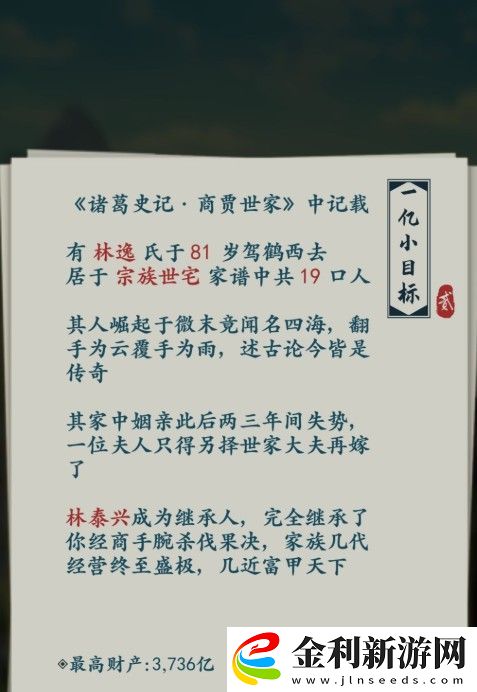 《诸葛史记·商贾世家》中记载
有 林逸 氏于 81 岁驾鹤西去
居于 宗族世宅 家谱中共 19 口人
其人崛起于微末竟闻名四海，翻
手为云覆手为雨，述古论今皆是
传奇
其家中姻亲此后两三年间失势，
一位夫人只得另择世家大夫再嫁
了
林泰兴成为继承人，完全继承了
你经商手腕杀伐果决，家族几代
经营终至盛极，几近富甲天下
◈最高财产:3,736亿
一亿小目标
贰
金利新游网
www.jlnseeds.com